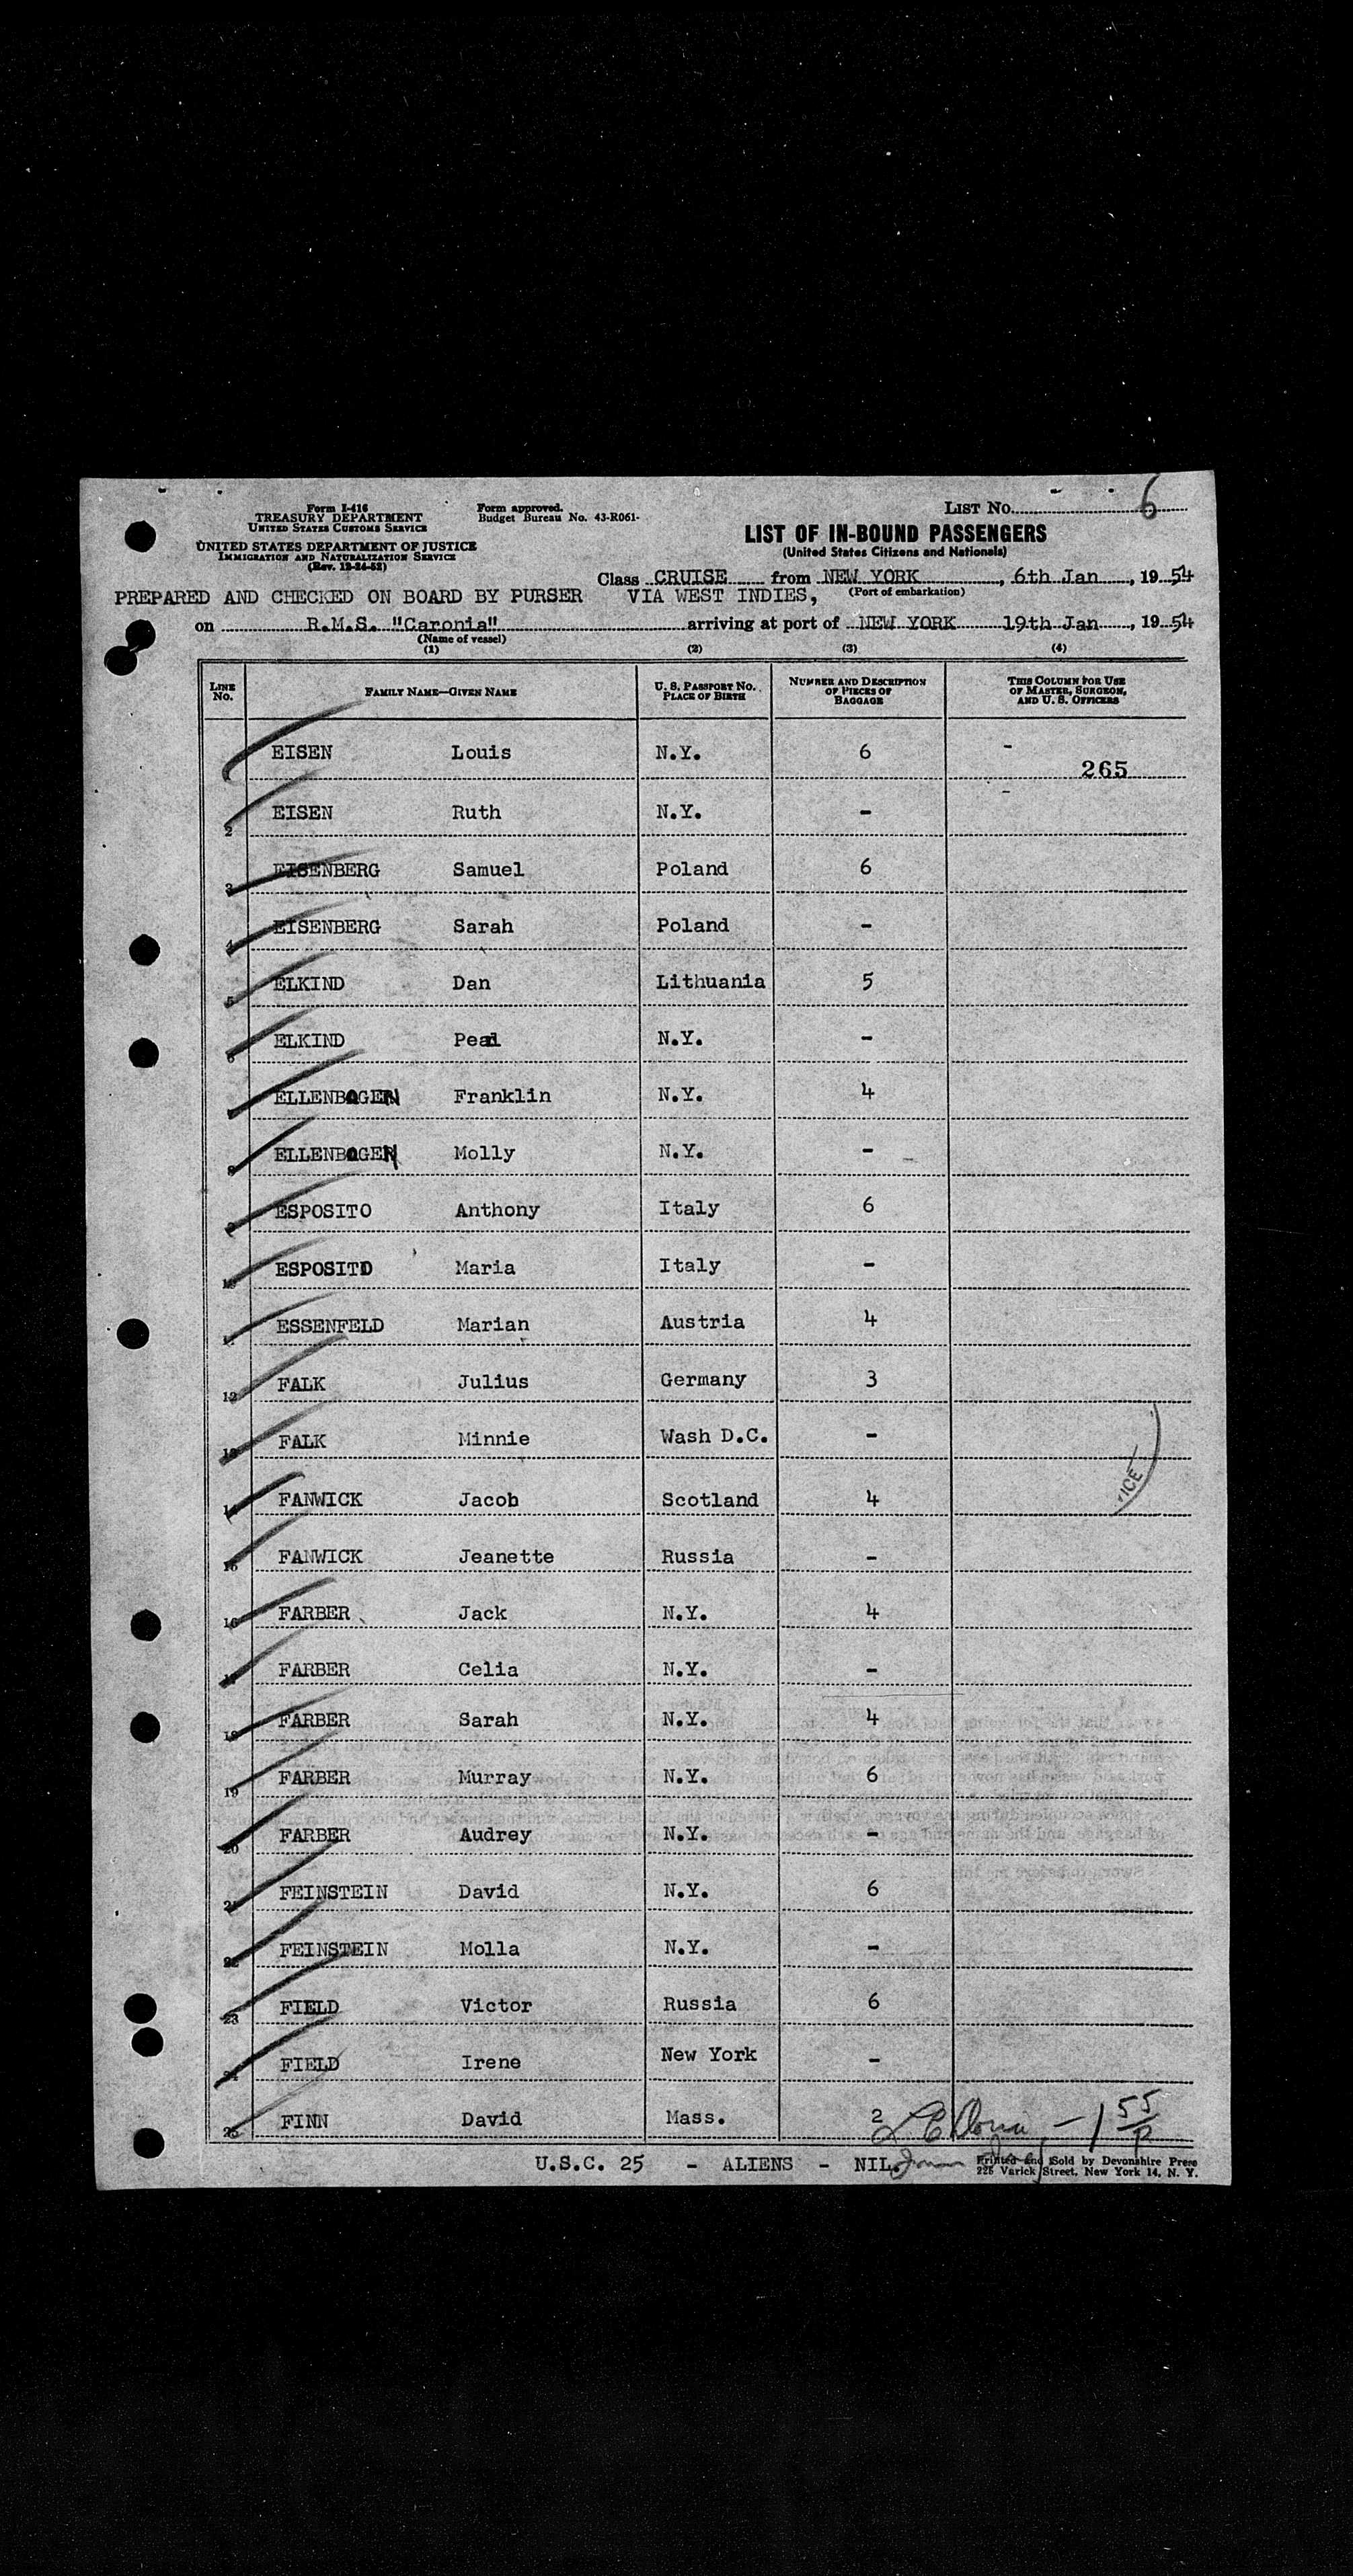 Form I-416
TREASURY DEPARTMENT
UNITED STATES CUSTOMS SERVICE
Form approved.
Budget Bureau No. 43-R061-
LIST No. 6
UNITED STATES DEPARTMENT OF JUSTICE
IMMIGRATION AND NATURALIZATION SERVICE
(Rev. 12-24-52)
LIST OF IN-BOUND PASSENGERS
(United States Citizens and Nationals)
Class CRUISE from NEW YORK, 6th Jan, 1954
(Port of embarkation)
PREPARED AND CHECKED ON BOARD BY PURSER VIA WEST INDIES,
on R.M.S. "Caronia" arriving at port of NEW YORK 19th Jan, 1954
(Name of vessel)
(1) (2) (3) (4)
LINE No. FAMILY NAME—GIVEN NAME U. S. PASSPORT NO. PLACE OF BIRTH NUMBER AND DESCRIPTION OF PIECES OF BAGGAGE THIS COLUMN FOR USE OF MASTER, SURGEON, AND U. S. OFFICERS
1 EISEN Louis N.Y. 6 - 265
2 EISEN Ruth N.Y. -
3 EISENBERG Samuel Poland 6
4 EISENBERG Sarah Poland -
5 ELKIND Dan Lithuania 5
6 ELKIND Pearl N.Y. -
7 ELLENBOGEN Franklin N.Y. 4
8 ELLENBOGEN Molly N.Y. -
9 ESPOSITO Anthony Italy 6
10 ESPOSITO Maria Italy -
11 ESSENFELD Marian Austria 4
12 FALK Julius Germany 3
13 FALK Minnie Wash D.C. -
14 FANWICK Jacob Scotland 4
15 FANWICK Jeanette Russia -
16 FARBER Jack N.Y. 4
17 FARBER Celia N.Y. -
18 FARBER Sarah N.Y. 4
19 FARBER Murray N.Y. 6
20 FARBER Audrey N.Y. -
21 FEINSTEIN David N.Y. 6
22 FEINSTEIN Molla N.Y. -
23 FIELD Victor Russia 6
24 FIELD Irene New York -
25 FINN David Mass. 2
U.S.C. 25 - ALIENS - NIL.
Printed and Sold by Devonshire Press
225 Varick Street, New York 14, N. Y.